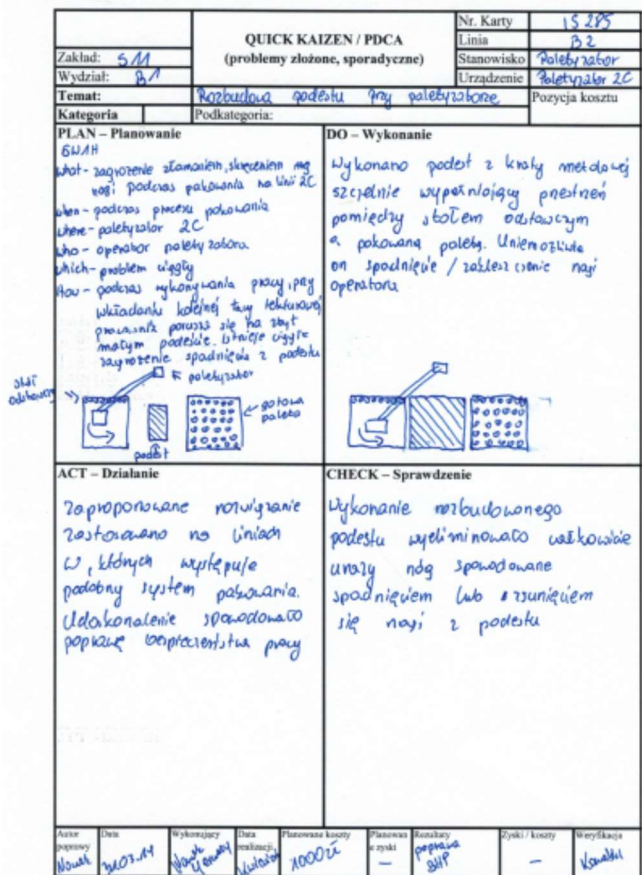 QUICK KAIZEN / PDCA
(problemy złożone, sporadyczne)
Nr. Karty 15 285
Linia B2
Zakład: S11
Stanowisko Paletyzator
Wydział: B1
Urządzenie Paletyzator 2C
Temat: Rozbudowa podestu przy paletyzatorze
Pozycja kosztu
Kategoria Podkategoria:
PLAN – Planowanie
what - zagrożenie złamaniem, skręceniem
nogi podczas pakowania na linii 2C
when - podczas procesu pakowania
where - paletyzator 2C
who - operator paletyzatora
which - problem ciągły
How - podczas wykonywania pracy, przy
wkładaniu kolejnej tacy tekturowej
pracownik porusza się na zbyt
małym podeście. Istnieje ciągłe
zagrożenie spadnięcia z podestu
paletyzator
stół
odstawczy
gotowa
paleta
podest
DO – Wykonanie
Wykonano podest z kraty metalowej
szczelnie wypełniający przestrzeń
pomiędzy stołem odstawczym
a pakowaną paletą. Uniemożliwia
on spadnięcie / zakleszczenie nogi
operatora
ACT – Działanie
Zaproponowane rozwiązanie
zastosowano na liniach
w, których występuje
podobny system pakowania.
Udoskonalenie spowodowało
poprawę bezpieczeństwa pracy
CHECK – Sprawdzenie
Wykonanie rozbudowanego
podestu wyeliminowało całkowicie
urazy nóg spowodowane
spadnięciem lub zsunięciem
się nogi z podestu
Autor poprawy
Nowak
Data
31.03.14
Wykonujący
Nowak
Data realizacji
Planowane koszty
1000 zł
Planowane zyski
–
Rezultaty
poprawa
BHP
Zyski / koszty
–
Weryfikacja
Kowalski